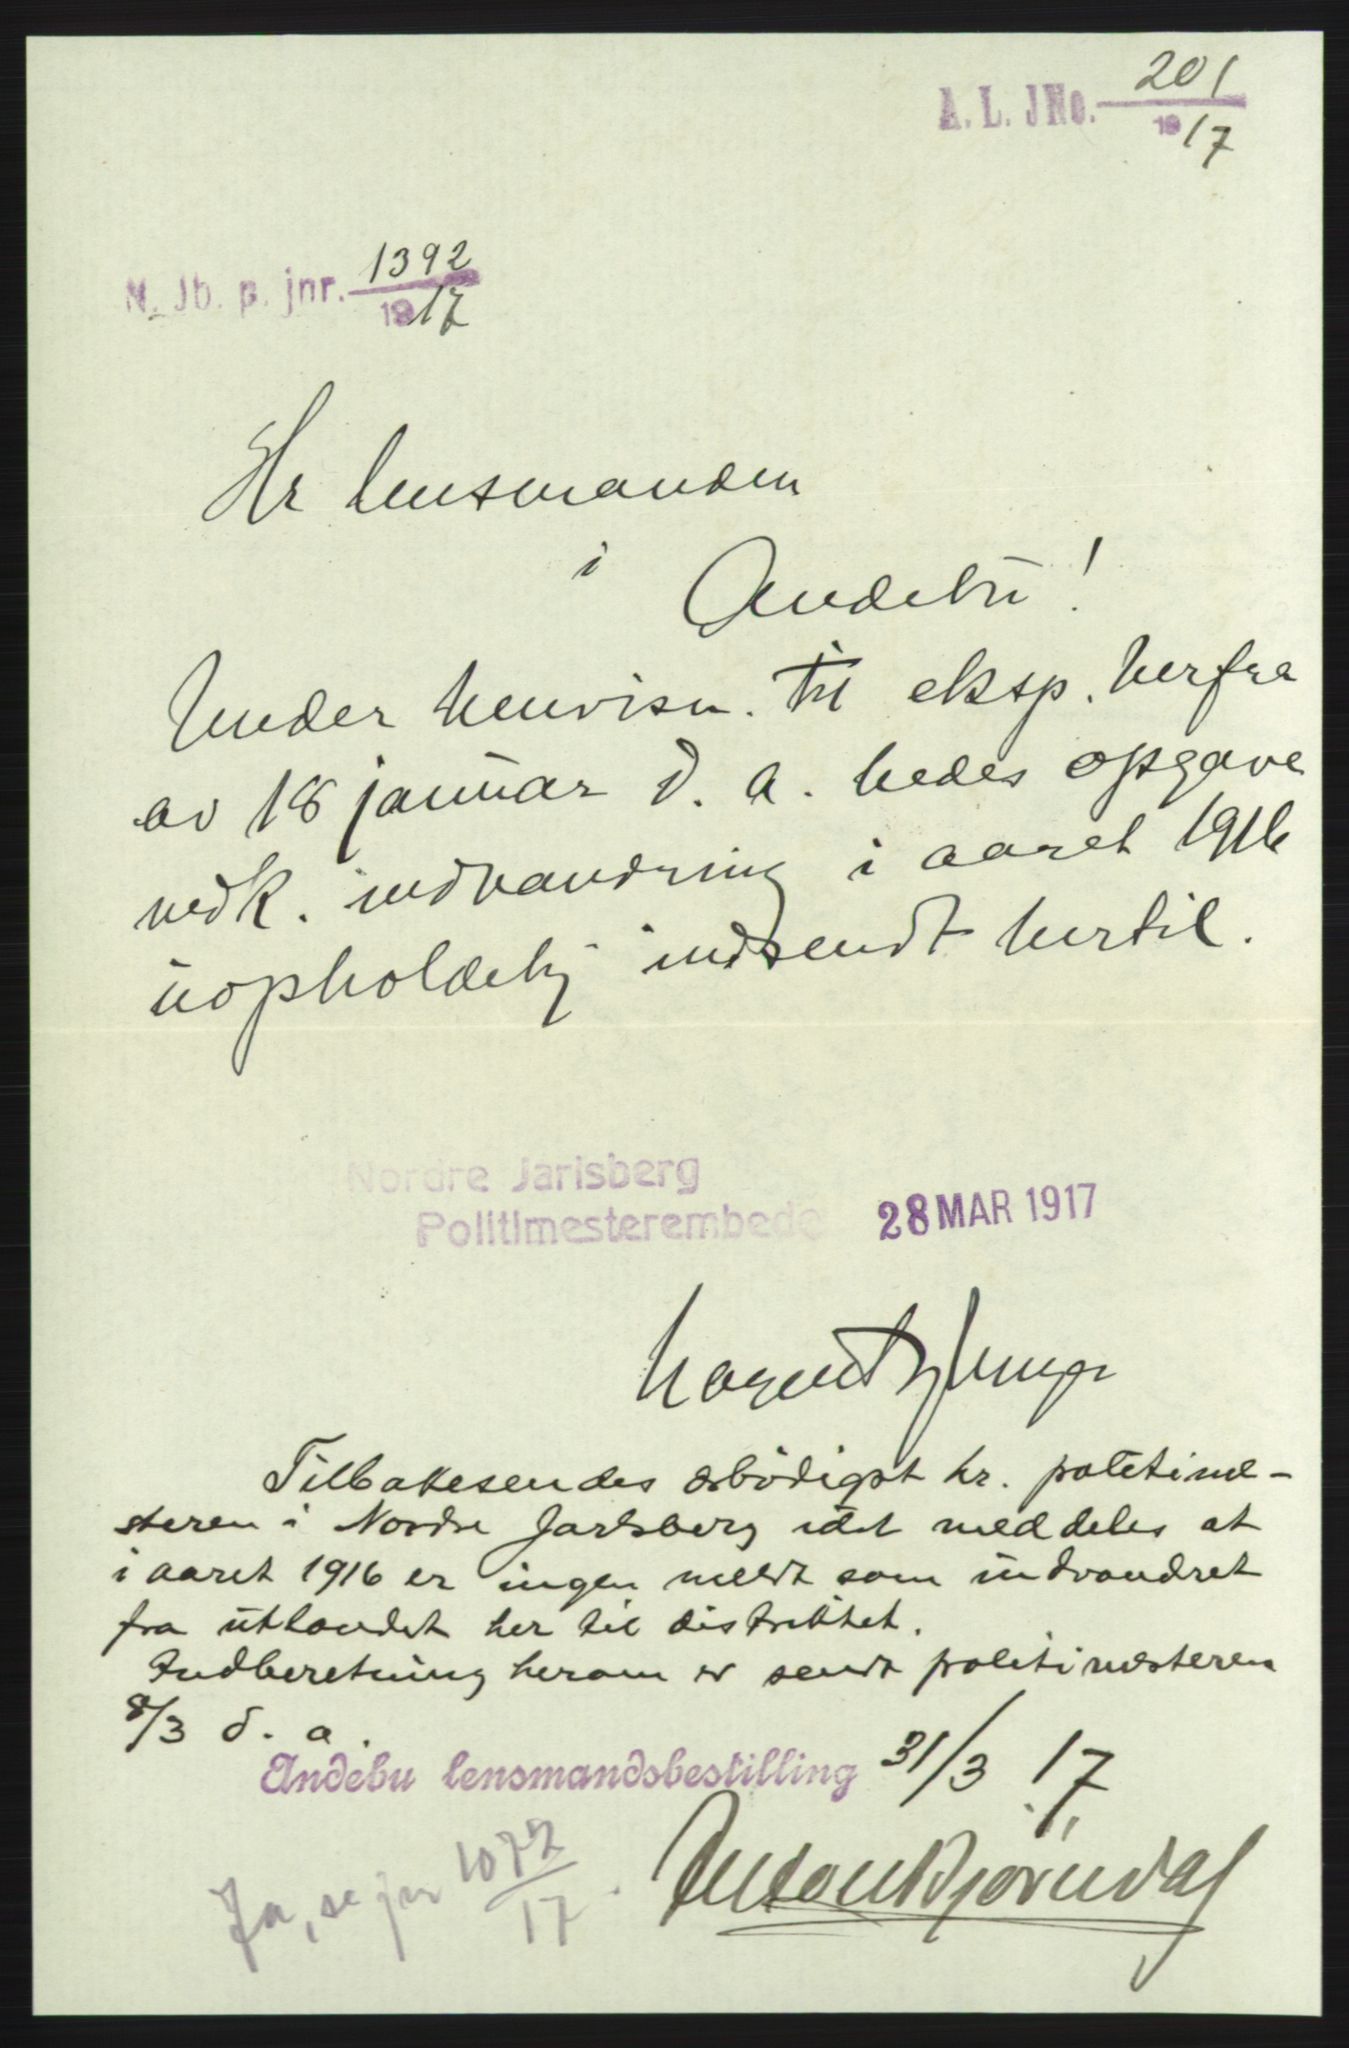 A. L. JNo. 201
1917
N. Jb. p. jnr. 1392
1917
Hr lensmanden
i Andebu!
Under henvisn. til eksp. herfra
av 18 januar d. a. bedes opgave
vedk. indvandring i aaret 1916
uopholdelig indsendt hertil.
Nordre Jarlsberg
Politimesterembede 28 MAR 1917
Tilbakesendes ærbødigst hr. politime-
steren i Nordre Jarlsberg idet meddeles at
i aaret 1916 er ingen meldt som indvandret
fra utlandet her til distriktet.
Indberetning herom er sendt politimesteren
8/3 d. a.
Andebu lensmandsbestilling 31/3 17
Anton Bjørndal
Ja, se jnr 1072
17.